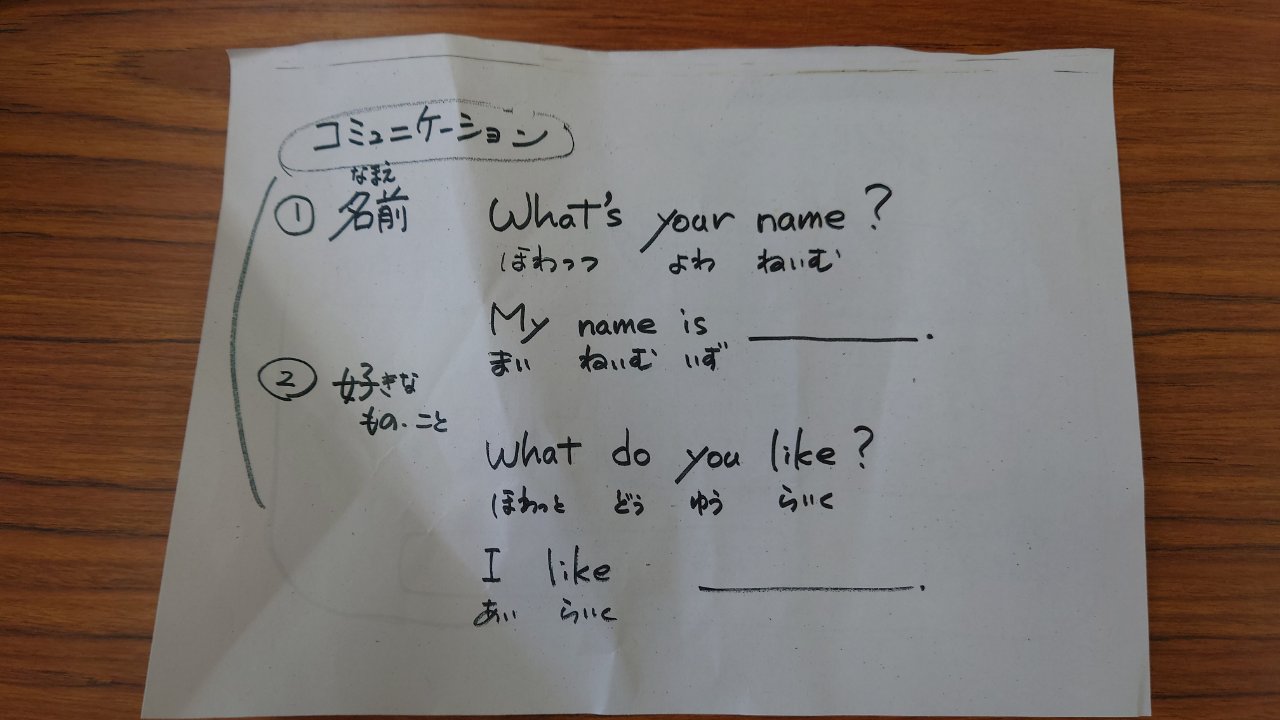 コミュニケーション
なまえ
① 名前 What's your name?
ほわっつ よわ ねいむ
My name is ______.
まい ねいむ いず
② 好きな
もの・こと
What do you like?
ほわっと どぅ ゆう らいく
I like ______.
あい らいく